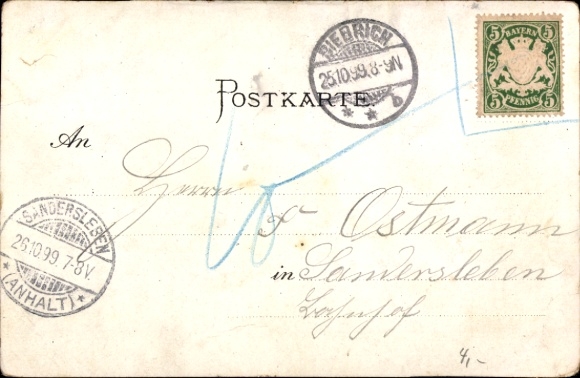 BIEBRICH
25.10.99.8-9N
b
BAYERN
5 5
5 PFENNIG 5
POSTKARTE.
An
Herrn
Ostmann
SANDERSLEBEN
26.10.99.7-8V.
(ANHALT)
in Sandersleben
Bahnhof
4,-